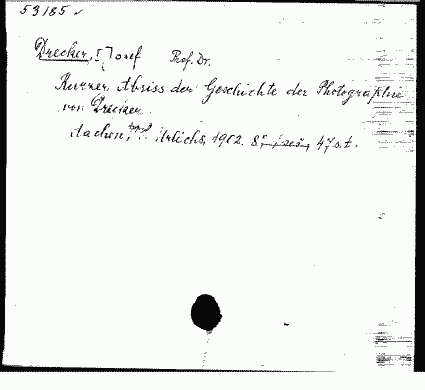 53185 ✓
Drecker, [J]osef Prof. Dr.
Kurzer Abriss der Geschichte der Photographie
von Drecker.
Aachen, Urlichs, 1902. 8° 47 s. t.